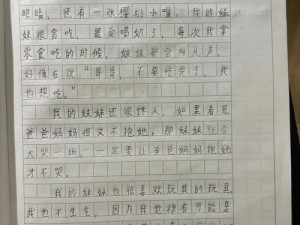 眼睛，还有一张樱桃小嘴。我的妹
妹很贪吃，最爱喝奶了，每次我拿
零食吃的时候，妹妹都会叫几声，
好像在说“哥哥，不要吃完了，我
也想吃。”
我的妹妹还很烦人，如果看见
爸爸妈妈但又不抱她，那妹妹就会
大哭一场，一定要让爸爸妈妈抱她
才不哭。
我的妹妹也很喜欢玩我的玩具
我也不生气，因为我觉得有可能是